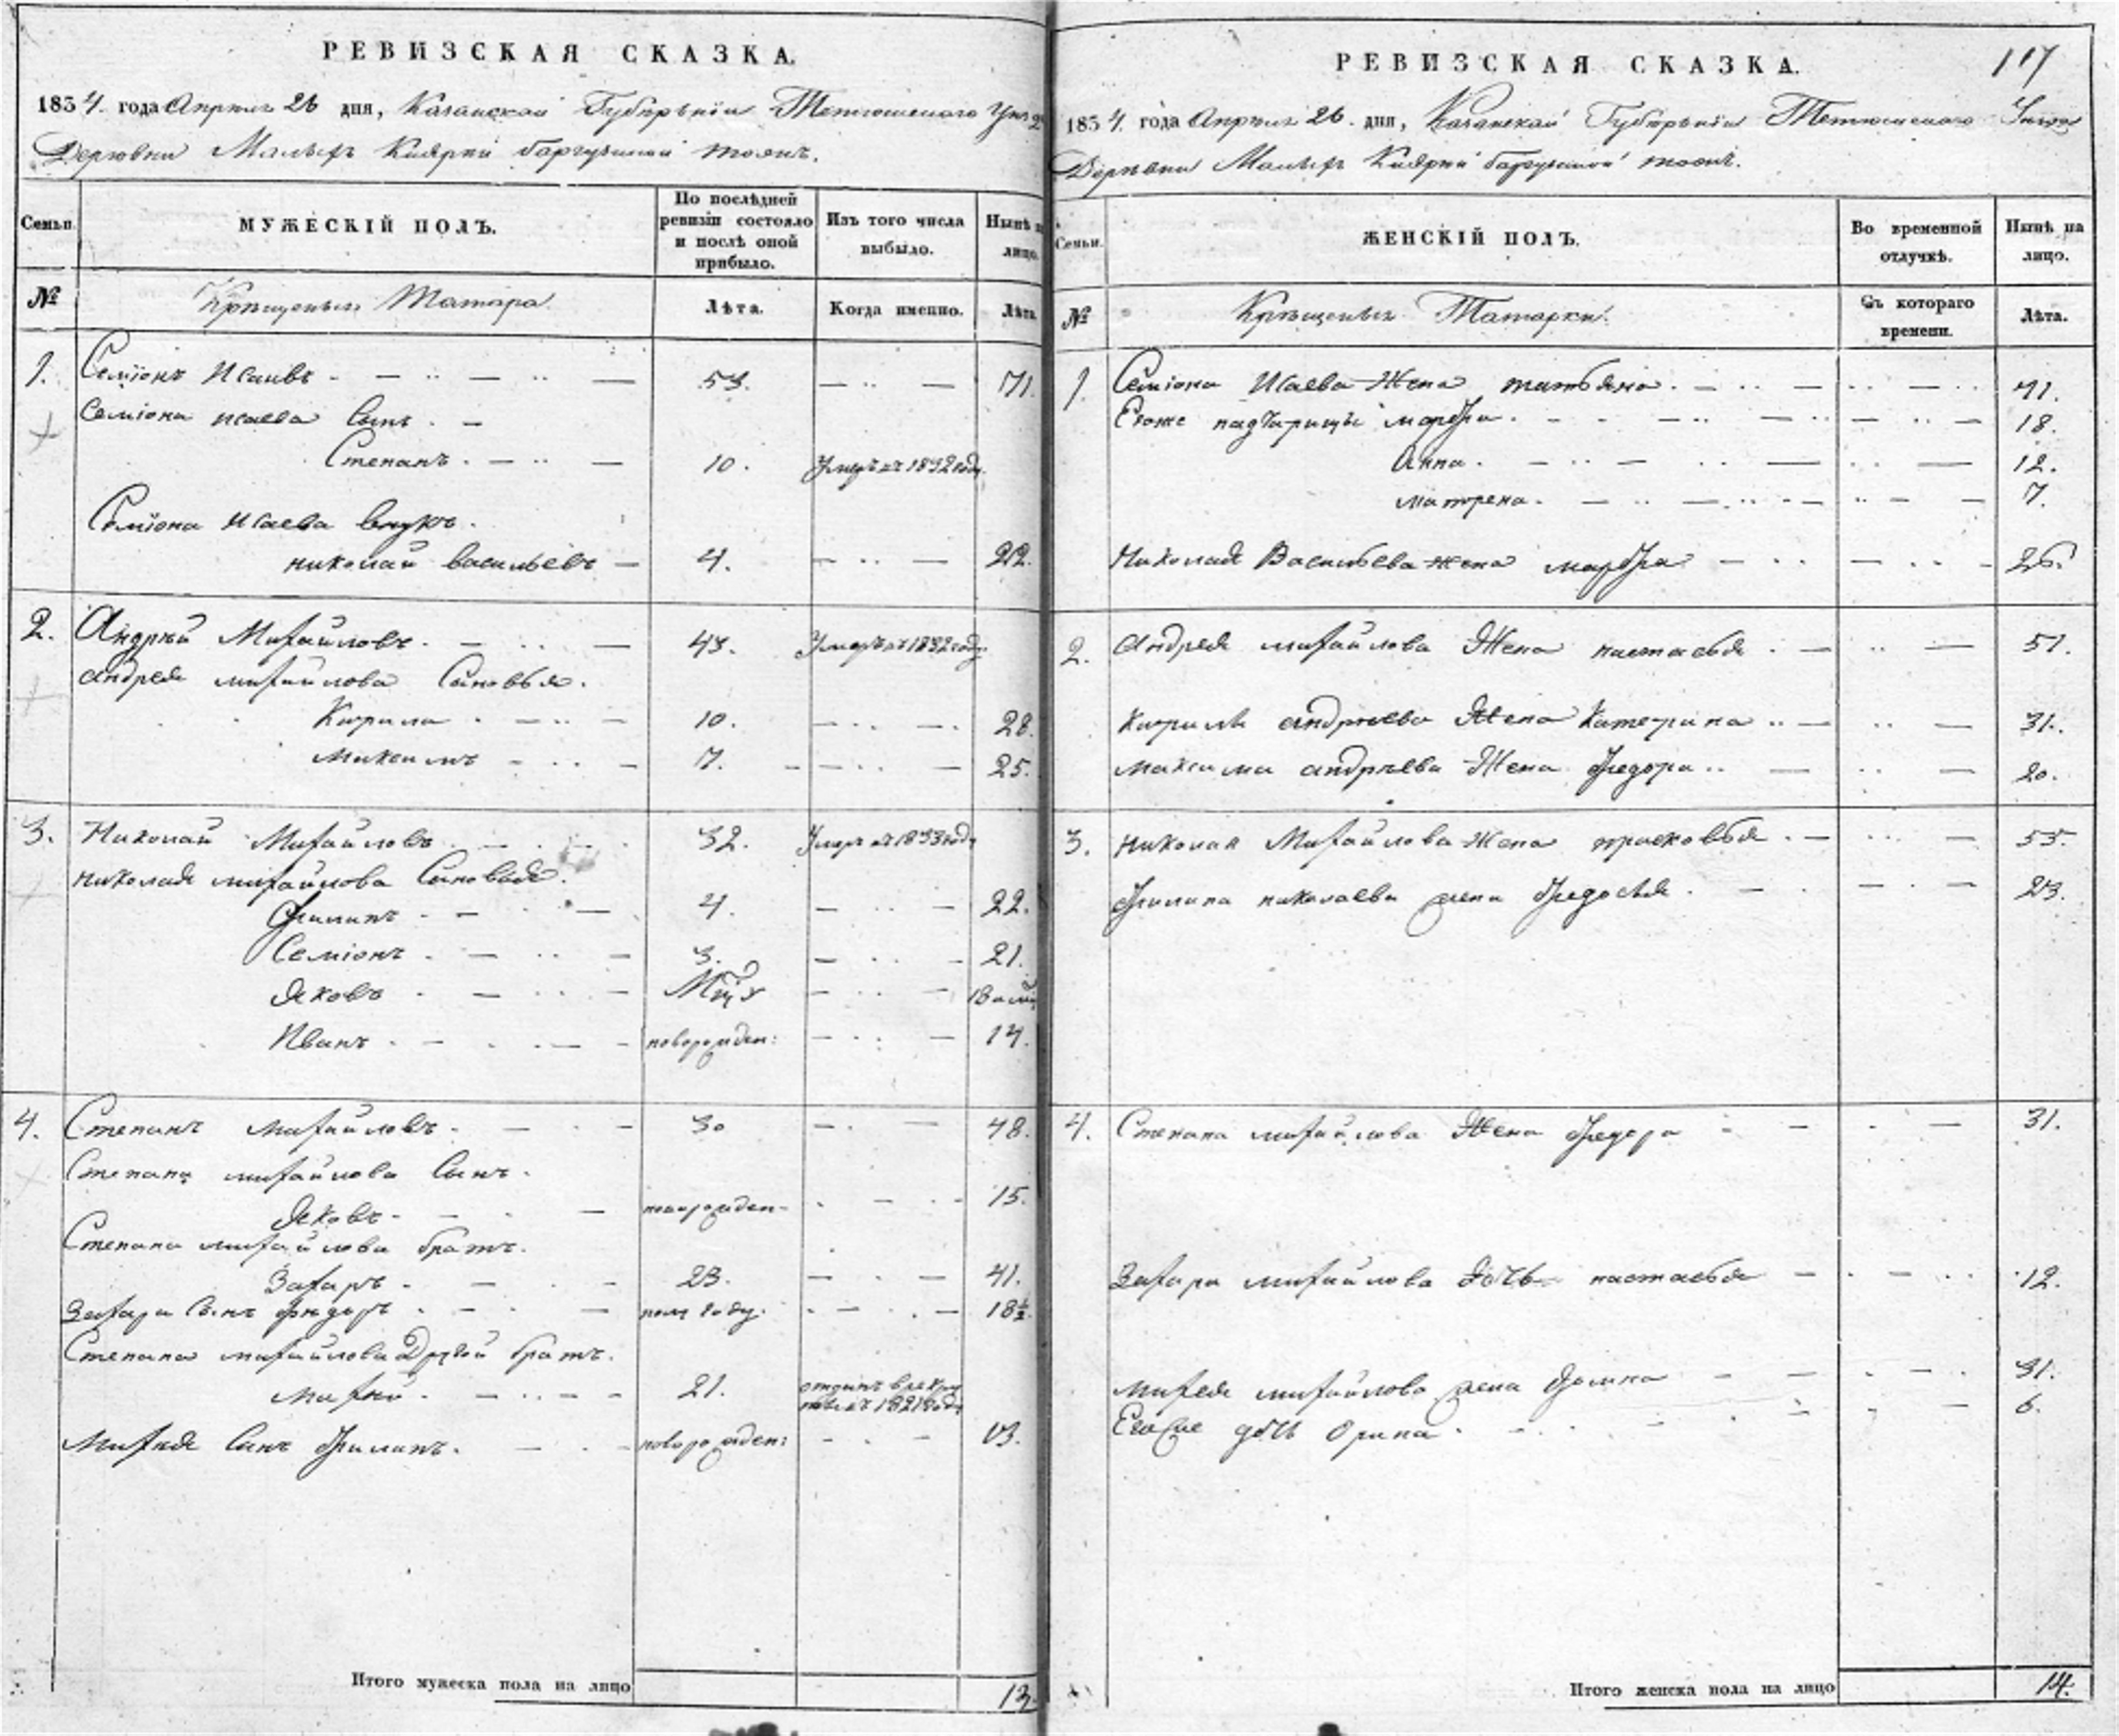 РЕВИЗСКАЯ СКАЗКА.
1834. года Апреля 26 дня, Казанской Губерънiи Тетюшского
Деревни Малыхъ тожъ.
Семьи.
МУЖЕСКIЙ ПОЛЪ.
По послѣдней ревизiи состояло и послѣ оной прибыло.
Изъ того числа выбыло.
Нынѣ на лицо.
№
Крещеныхъ Татаръ
Лѣта.
Когда именно.
Лѣта.
1. Семiонъ Исаивъ 53. 71.
Семiона исаева Сынъ.
Степанъ. 10. Умеръ въ 1832 году.
Семiона исаева внукъ.
николай васильевъ 4. 22.
2. Андрѣй Михайловъ. 43. Умеръ въ 1832 году.
андрея михайлова Сыновья.
Кирила 10. 28.
Максимъ 7. 25.
3. Николай Михайловъ 32. Умеръ въ 1833 году
николая михайлова Сыновья.
Филипъ 4. 22.
Семiонъ 3. 21.
Яковъ
Иванъ. новорожден: 14.
4. Степанъ михайловъ. 30 48.
Степана михайлова Сынъ.
Яковъ новорожден 15.
Степана михайлова братъ.
Захаръ. 23. 41.
Захара Сынъ фиодоръ полу году. 18½.
Степана михайлова Другой братъ.
Махѣй. 21. отданъ в рекруты въ 1821 году
Михея Сынъ Филипъ. новорожден: 13.
Итого мужеска пола на лицо 13.
РЕВИЗСКАЯ СКАЗКА.
117
1834. года Апреля 26. дня, Казанской Губерънiи Тетюшского
Деревни Малыхъ тожъ.
Семьи.
ЖЕНСКIЙ ПОЛЪ.
Во временной отлучкѣ.
Нынѣ на лицо.
№
Крещеныхъ Татарки.
Съ котораго времени.
Лѣта.
1. Семiона Исаева Жена татьяна. 41.
Егоже падчарицы марфа. 18.
Анна. 12.
матрена. 7.
Николая Васильева жена марфа 26.
2. Андрея михайлова Жена настасья. 51.
Кирилы андрѣева Жена Катерина 31.
максима андрѣева Жена федора 20.
3. николая Михайлова Жена прасковья. 55.
филипа николаева жена федосья. 23.
4. Степана михайлова Жена федора 31.
Захара михайлова дочь настасья 12.
михея михайлова жена домна 31.
Егоже дочь орина. 6.
Итого женска пола на лицо 14.